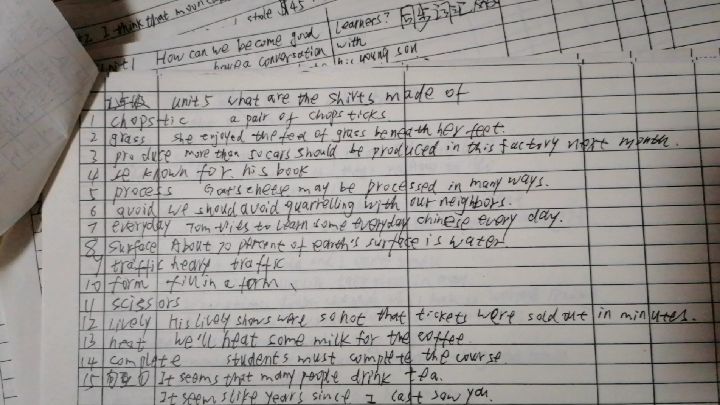 I think that moun
I stole $45
Unit1 How can we become good learners?
have a conversation with his young son
九年级 unit 5 what are the shirts made of
1 chopstic a pair of chopsticks
2 grass she enjoyed the feel of grass beneath her feet.
3 produce more than 50 cars should be produced in this factory next month.
4 be known for his book
5 process Goat's cheese may be processed in many ways.
6 avoid we should avoid quarrelling with our neighbors.
7 everyday Tom tries to learn some everyday chinese every day.
8 surface About 70 percent of earth's surface is water
9 traffic heavy traffic
10 form fill in a form
11 scissors
12 lively His lively shows were so hot that tickets were sold out in minutes.
13 heat we'll heat some milk for the coffee.
14 complete students must complete the course.
15 It seems that many people drink tea.
It seems like years since I last saw you.